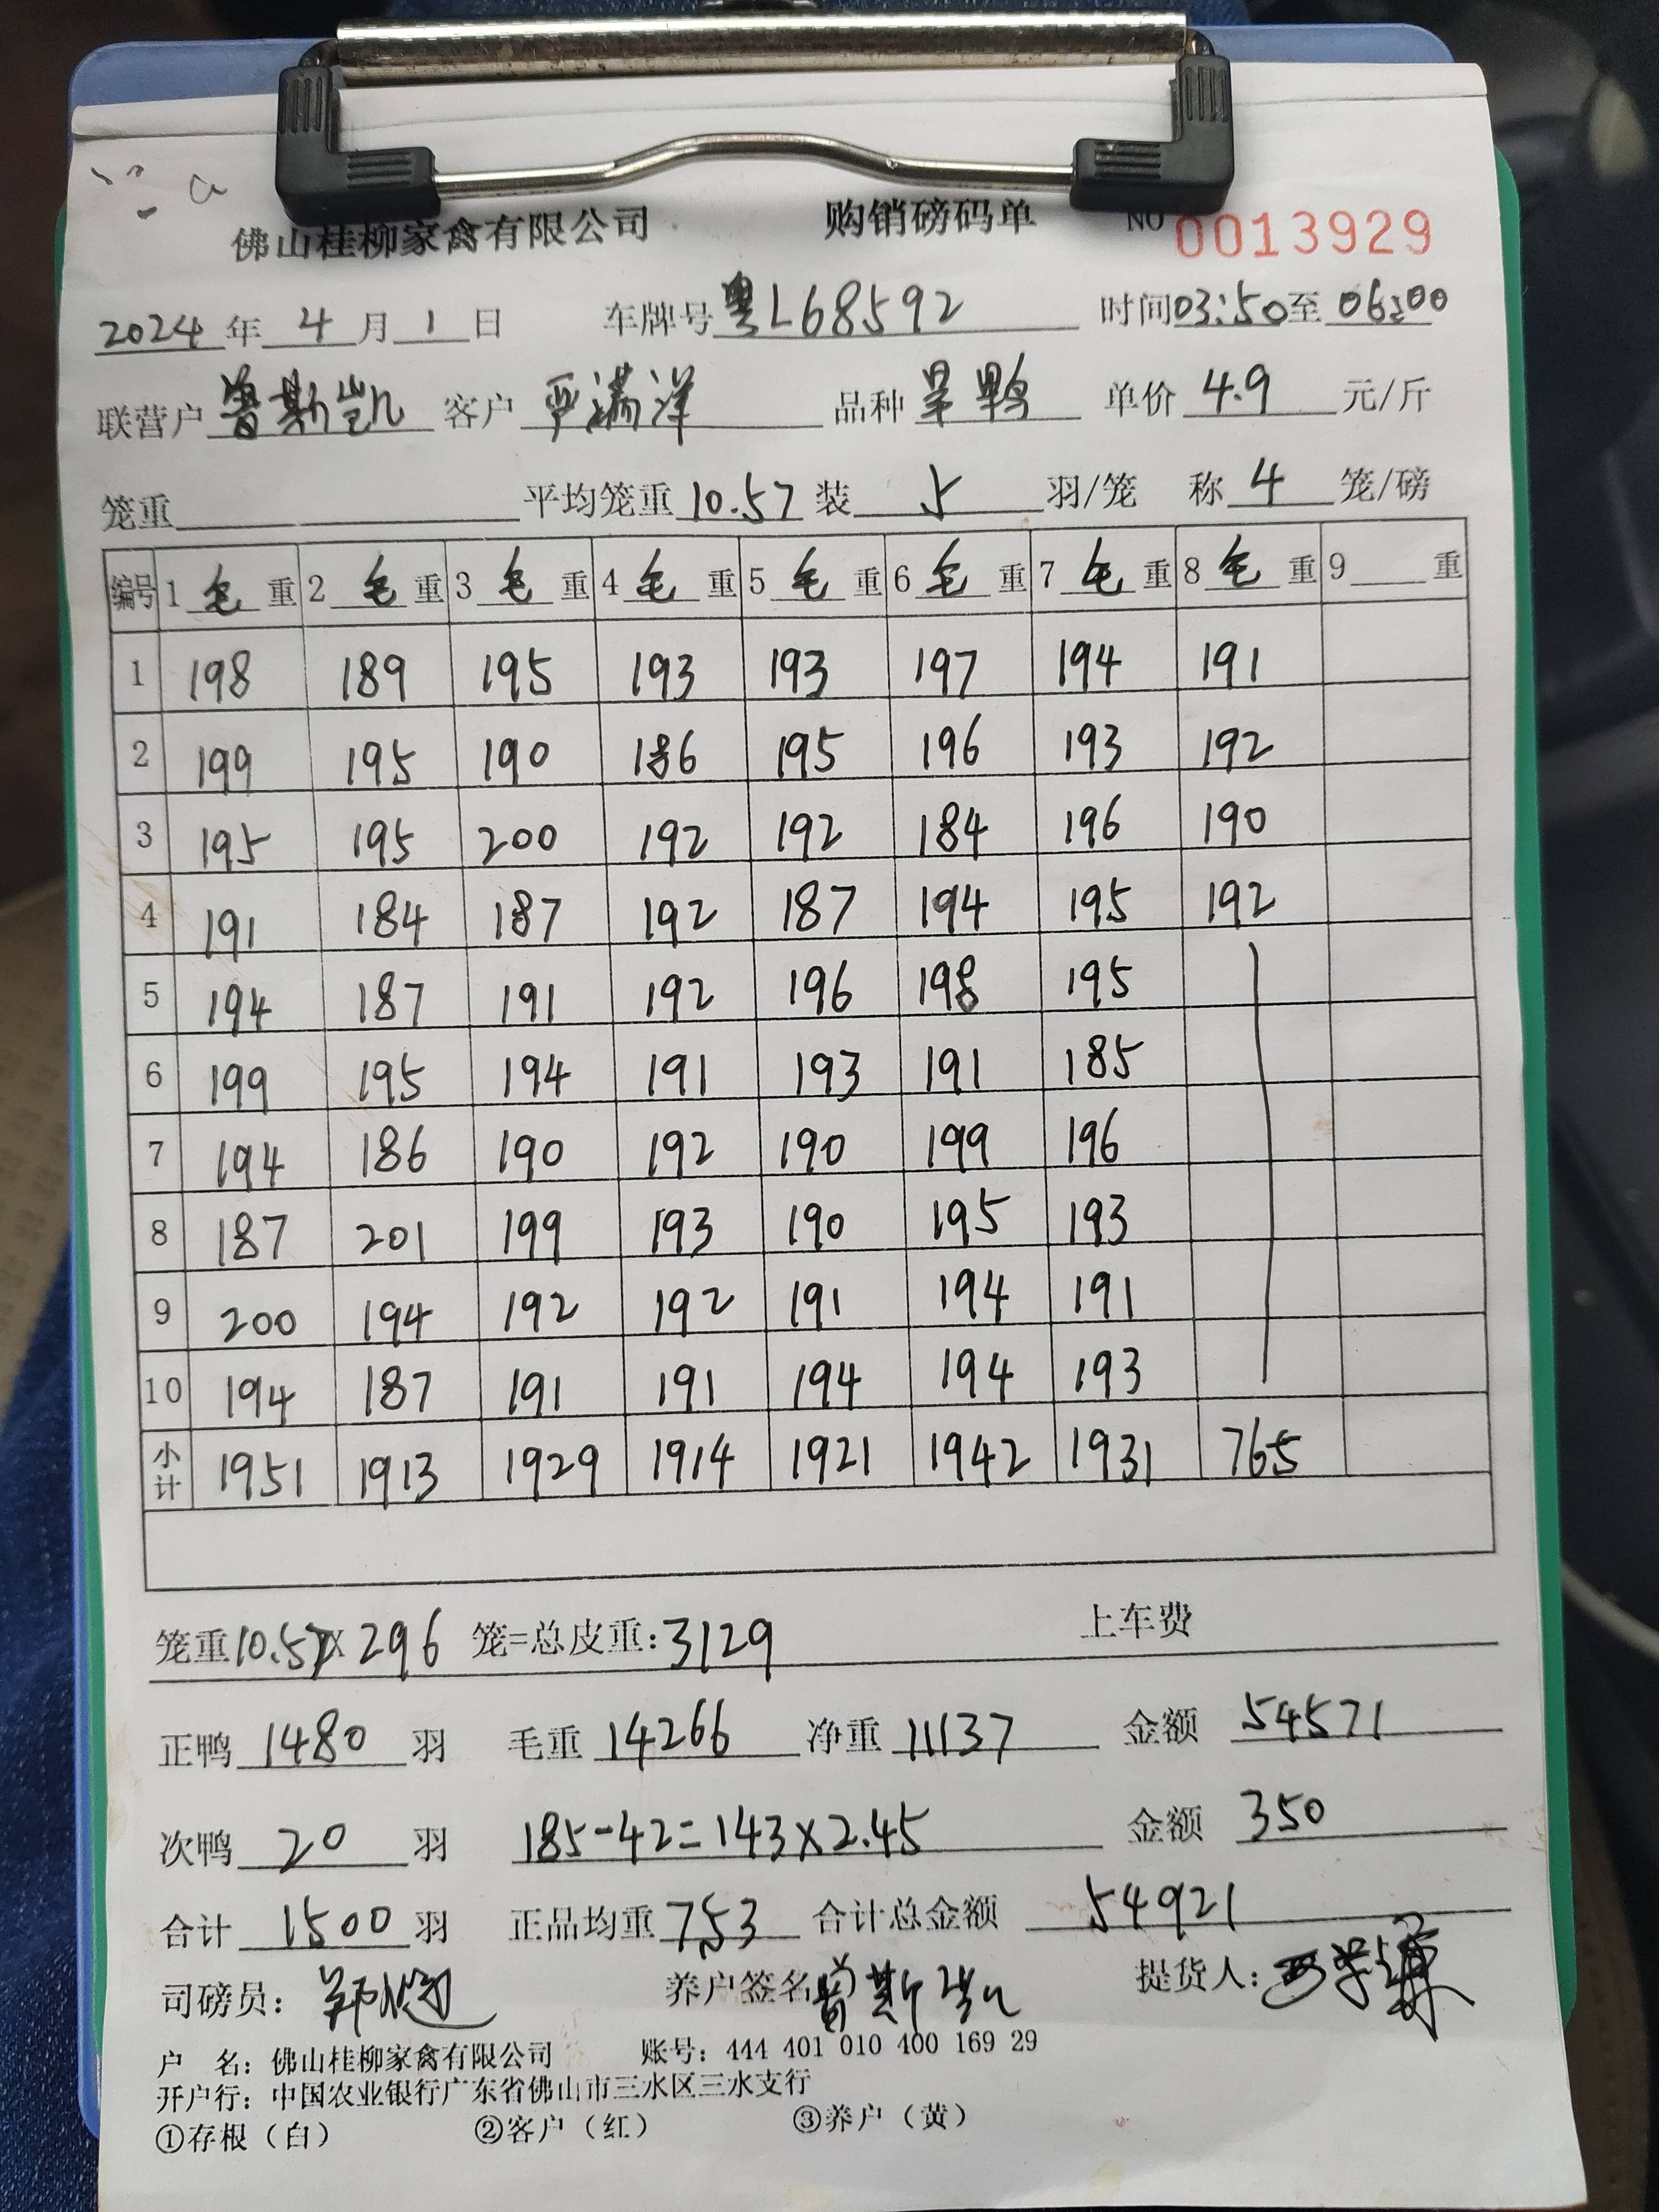 佛山桂柳家禽有限公司 购销磅码单 NO 0013929
2024年4月1日 车牌号粤L68592 时间03:50至06:00
联营户曾斯凯 客户严满洋 品种旱鸭 单价4.9元/斤
笼重 平均笼重10.57装5羽/笼 称4笼/磅
编号 1毛重 2毛重 3毛重 4毛重 5毛重 6毛重 7毛重 8毛重 9重
1 198 189 195 193 193 197 194 191
2 199 195 190 186 195 196 193 192
3 195 195 200 192 192 184 196 190
4 191 184 187 192 187 194 195 192
5 194 187 191 192 196 198 195
6 199 195 194 191 193 191 185
7 194 186 190 192 190 199 196
8 187 201 199 193 190 195 193
9 200 194 192 192 191 194 191
10 194 187 191 191 194 194 193
小计 1951 1913 1929 1914 1921 1942 1931 765
笼重10.57X296笼=总皮重:3129 上车费
正鸭1480羽 毛重14266 净重11137 金额54571
次鸭20羽 185-42=143×2.45 金额350
合计1500羽 正品均重7.53 合计总金额54921
司磅员: 养户签名曾斯凯 提货人:
户 名:佛山桂柳家禽有限公司 账号:444 401 010 400 169 29
开户行:中国农业银行广东省佛山市三水区三水支行
①存根(白) ②客户(红) ③养户(黄)